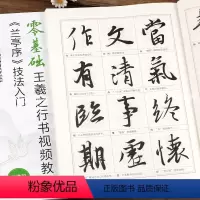 零基础
王羲之行书视频教
《兰亭序》技法入门
作文當
有清氣
臨事終
期靈懷
粉象优品